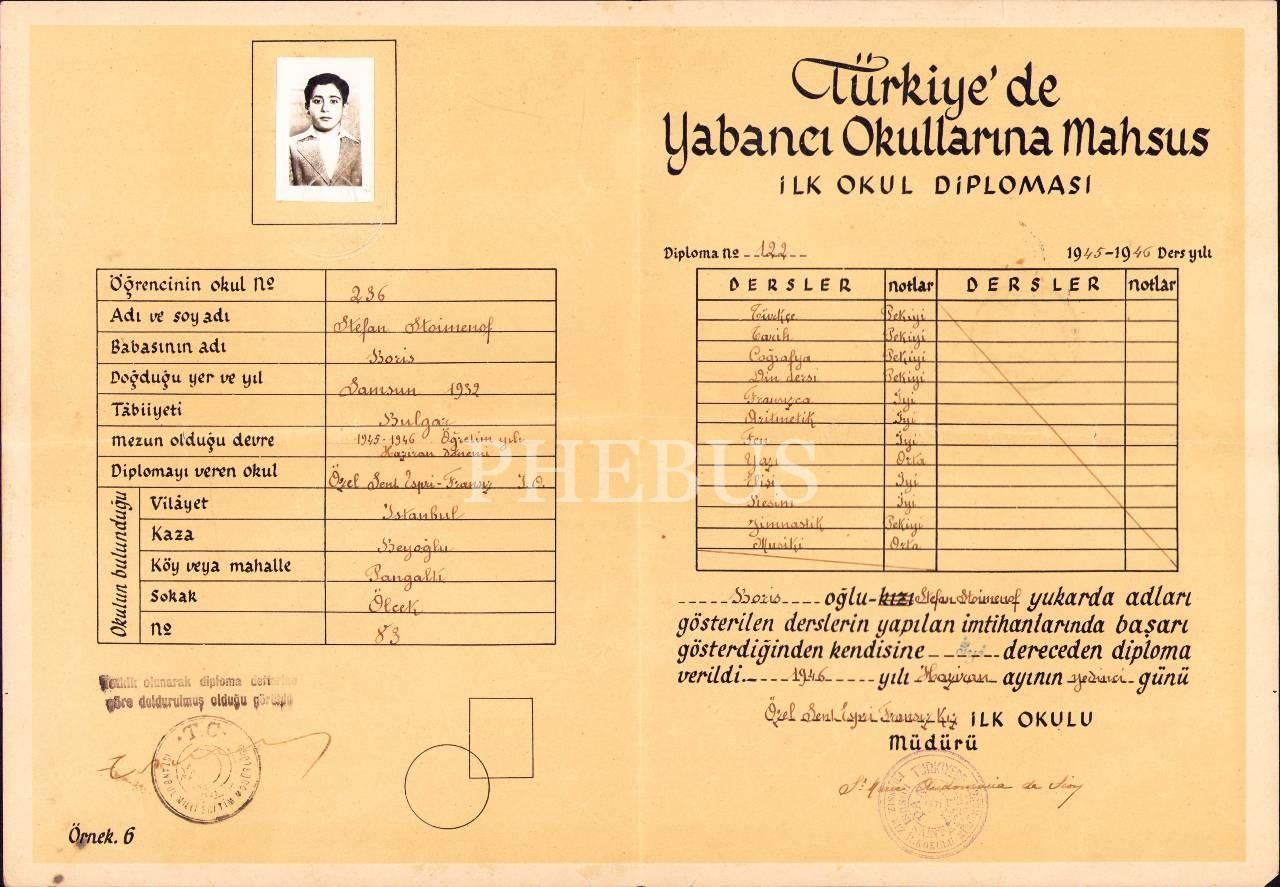 Öğrencinin okul Nº 236
Adı ve soyadı Stefan Stoimenof
Babasının adı Boris
Doğduğu yer ve yıl Samsun 1932
Tâbiiyeti Bulgar
mezun olduğu devre 1945-1946 Öğretim yılı
Haziran dönemi
Diplomayı veren okul Özel Sent Espri-Fransız İ.O.
Okulun bulunduğu
Vilâyet İstanbul
Kaza Beyoğlu
Köy veya mahalle Pangaltı
Sokak Ölçek
Nº 83
Tetkik olunarak diploma defterine
göre doldurulmuş olduğu görüldü
T.C.
Örnek. 6
Türkiye'de
Yabancı Okullarına Mahsus
İLK OKUL DİPLOMASI
Diploma Nº 122 1945-1946 Ders yılı
DERSLER notlar DERSLER notlar
Türkçe Pekiyi
Tarih Pekiyi
Coğrafya Pekiyi
Din dersi Pekiyi
Fransızca İyi
Aritmetik İyi
Fen İyi
Yazı Orta
Elişi İyi
Resim İyi
Jimnastik Pekiyi
Musiki Orta
Boris oğlu-kızı Stefan Stoimenof yukarda adları
gösterilen derslerin yapılan imtihanlarında başarı
gösterdiğinden kendisine İyi dereceden diploma
verildi. 1946 yılı Haziran ayının yedinci günü
Özel Sent Espri Fransız Kız İLK OKULU
Müdürü
de Sion
PHEBUS